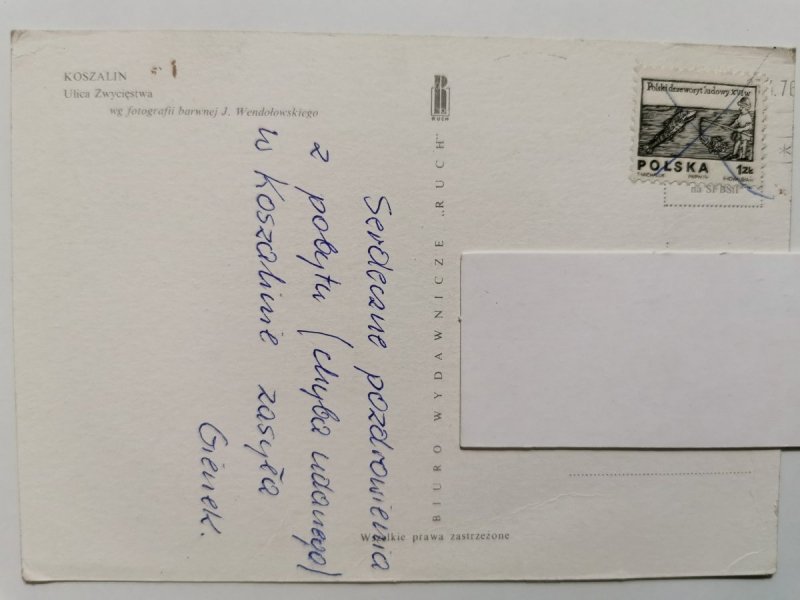 KOSZALIN
Ulica Zwycięstwa
wg fotografii barwnej J. Wendołowskiego
RUCH
Polski drzeworyt ludowy XVI w
POLSKA 1zł
.76
na SFBSH
Serdeczne pozdrowienia
z pobytu (chyba udanego)
w Koszalinie zasyła
Gienek.
BIURO WYDAWNICZE „RUCH"
Wszelkie prawa zastrzeżone